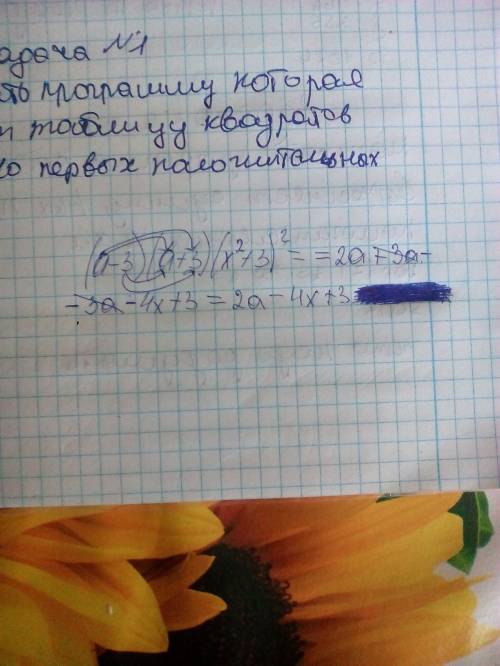 адача №1
ть программу которая
т таблицу квадратов
го первых положительных
(a-3)(a+3)(x²+3)² = = 2a+3a-
-3a-4x+3 = 2a-4x+3